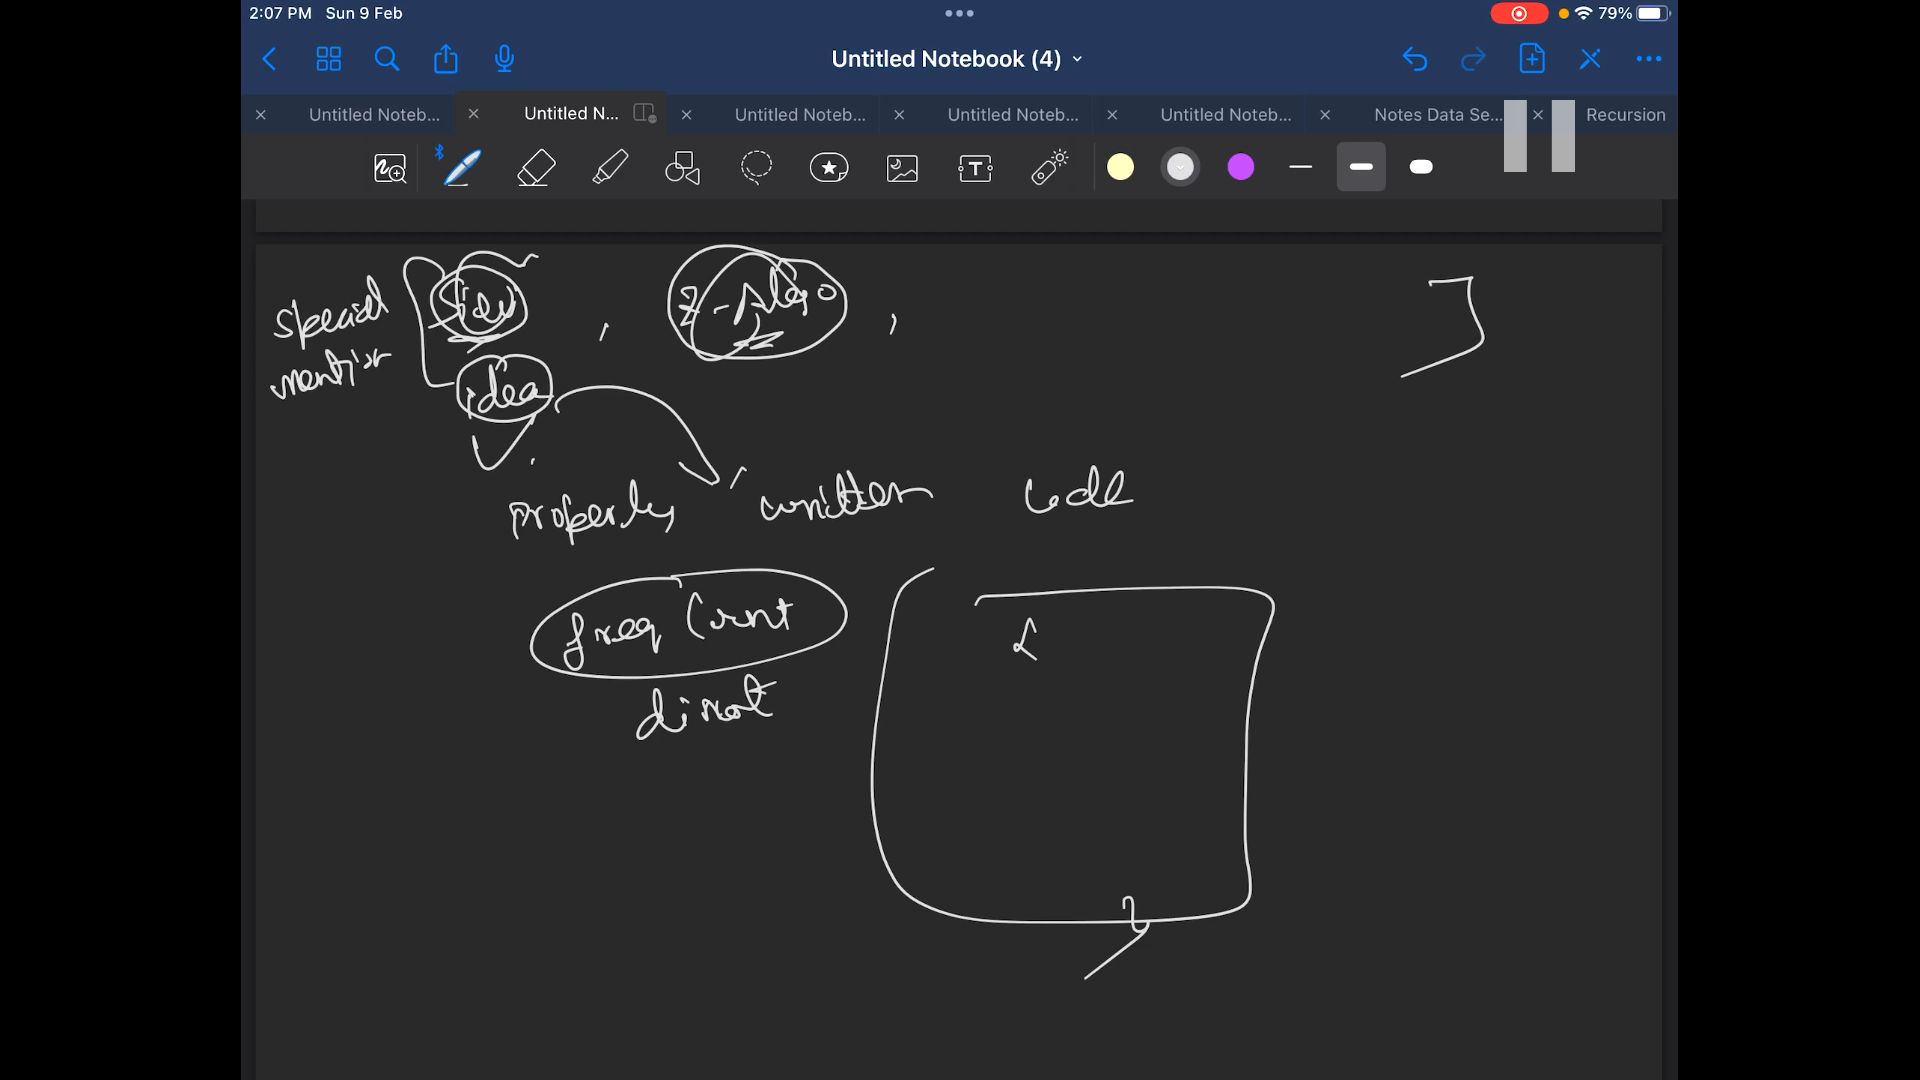 2:07 PM Sun 9 Feb
79%
Untitled Notebook (4)
Untitled Noteb...
Untitled N...
Untitled Noteb...
Untitled Noteb...
Untitled Noteb...
Notes Data Se...
Recursion
T
special
mention
,
Z-Algo
,
idea
properly written code
freq Count